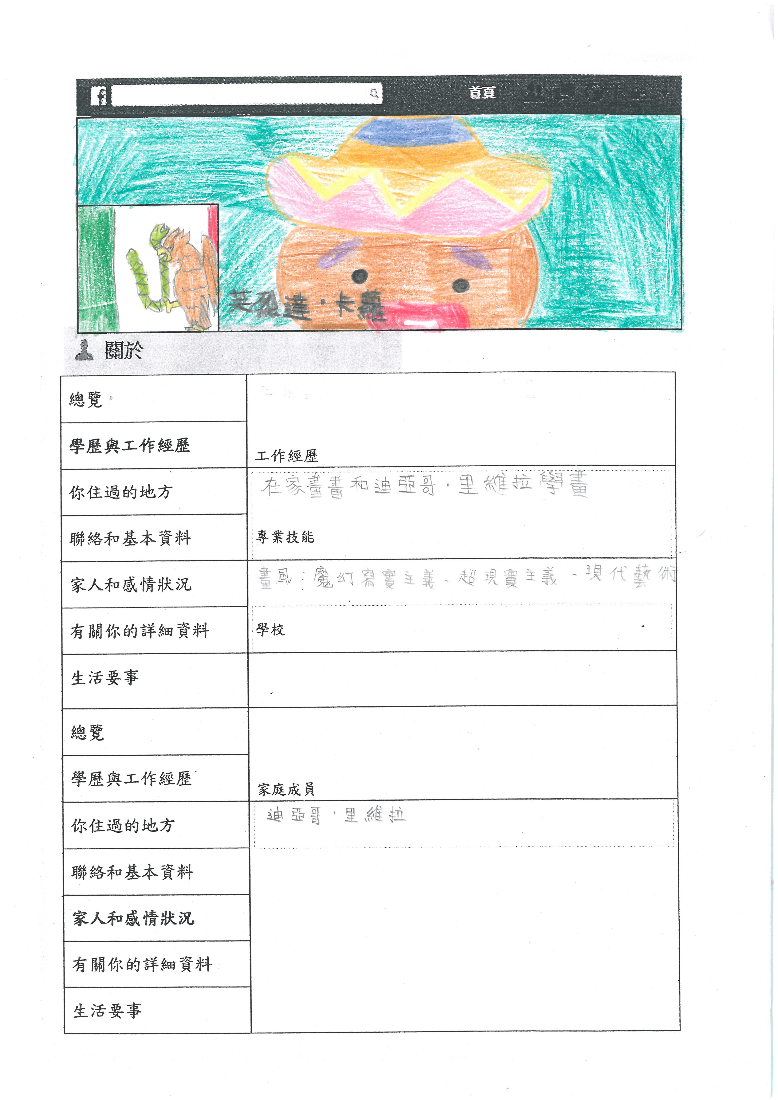 f
首頁
芙烈達·卡蘿
關於
總覽
學歷與工作經歷
工作經歷
你住過的地方
在家畫畫和迪亞哥·里維拉學畫
聯絡和基本資料
專業技能
家人和感情狀況
畫風:魔幻寫實主義、超現實主義、現代藝術
有關你的詳細資料
學校
生活要事
總覽
學歷與工作經歷
家庭成員
你住過的地方
迪亞哥·里維拉
聯絡和基本資料
家人和感情狀況
有關你的詳細資料
生活要事